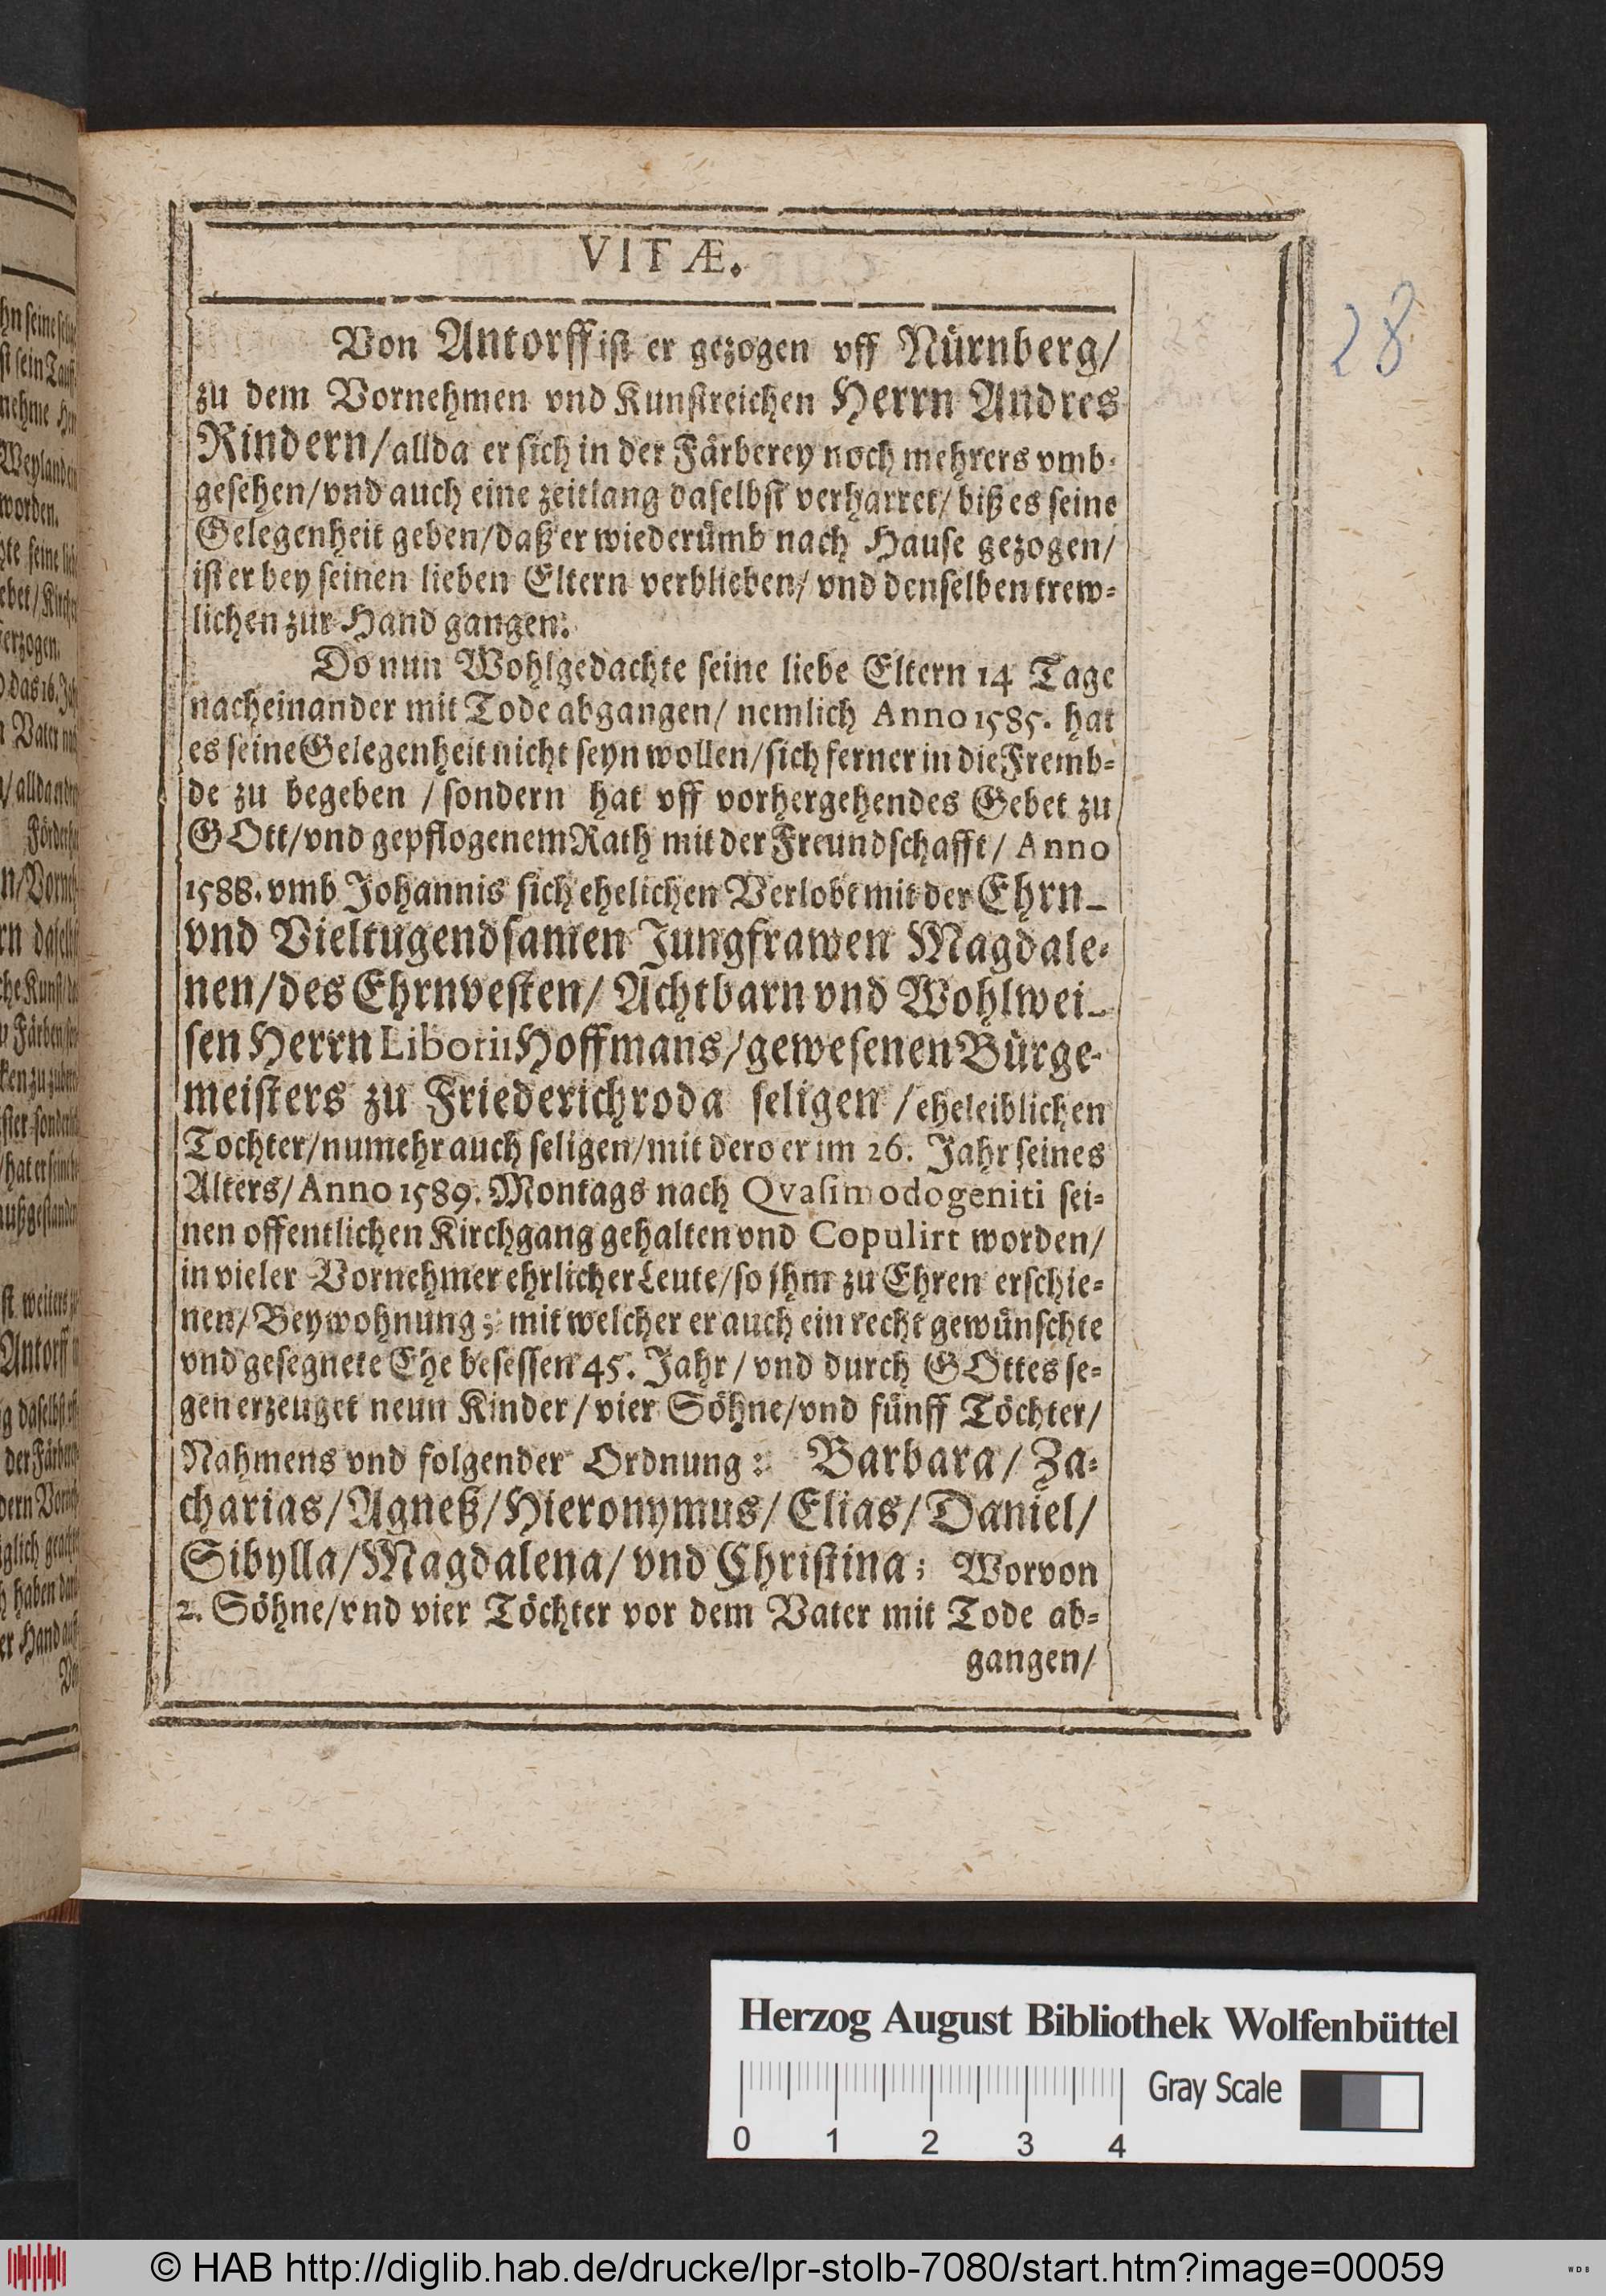 VITÆ.
28
Von Antorff ist er gezogen vff Nürnberg/
zu dem Vornehmen vnd Kunstreichen Herrn Andres
Rindern/ allda er sich in der Färberey noch mehrers vmb-
gesehen/ vnd auch eine zeitlang daselbst verharret/ biß es seine
Gelegenheit geben/ daß er wiederümb nach Hause gezogen/
ist er bey seinen lieben Eltern verblieben/ vnd denselben trew-
lichen zur Hand gangen.
Do nun Wohlgedachte seine liebe Eltern 14 Tage
nacheinander mit Tode abgangen/ nemlich Anno 1585. hat
es seine Gelegenheit nicht seyn wollen/ sich ferner in die Fremb-
de zu begeben / sondern hat vff vorhergehendes Gebet zu
GOtt/ vnd gepflogenem Rath mit der Freundschafft/ Anno
1588. vmb Johannis sich ehelichen Verlobt mit der Ehrn-
vnd Vieltugendsamen Jungfrawen Magdale-
nen/ des Ehrnvesten/ Achtbarn vnd Wohlwei-
sen Herrn Liborii Hoffmans/ gewesenen Bürge-
meisters zu Friederichroda seligen / eheleiblichen
Tochter/ numehr auch seligen/ mit dero er im 26. Jahr seines
Alters/ Anno 1589. Montags nach Qvasimodogeniti sei-
nen offentlichen Kirchgang gehalten vnd Copulirt worden/
in vieler Vornehmer ehrlicher Leute/ so jhm zu Ehren erschie-
nen/ Beywohnung; mit welcher er auch ein recht gewünschte
vnd gesegnete Ehe besessen 45. Jahr / vnd durch GOttes se-
gen erzeuget neun Kinder / vier Söhne/ vnd fünff Töchter/
Nahmens vnd folgender Ordnung: Barbara/ Za-
charias/ Agneß/ Hieronymus/ Elias/ Daniel/
Sibylla/ Magdalena/ vnd Christina; Worvon
2. Söhne/ vnd vier Töchter vor dem Vater mit Tode ab-
gangen/
Herzog August Bibliothek Wolfenbüttel
Gray Scale
0 1 2 3 4
© HAB http://diglib.hab.de/drucke/lpr-stolb-7080/start.htm?image=00059